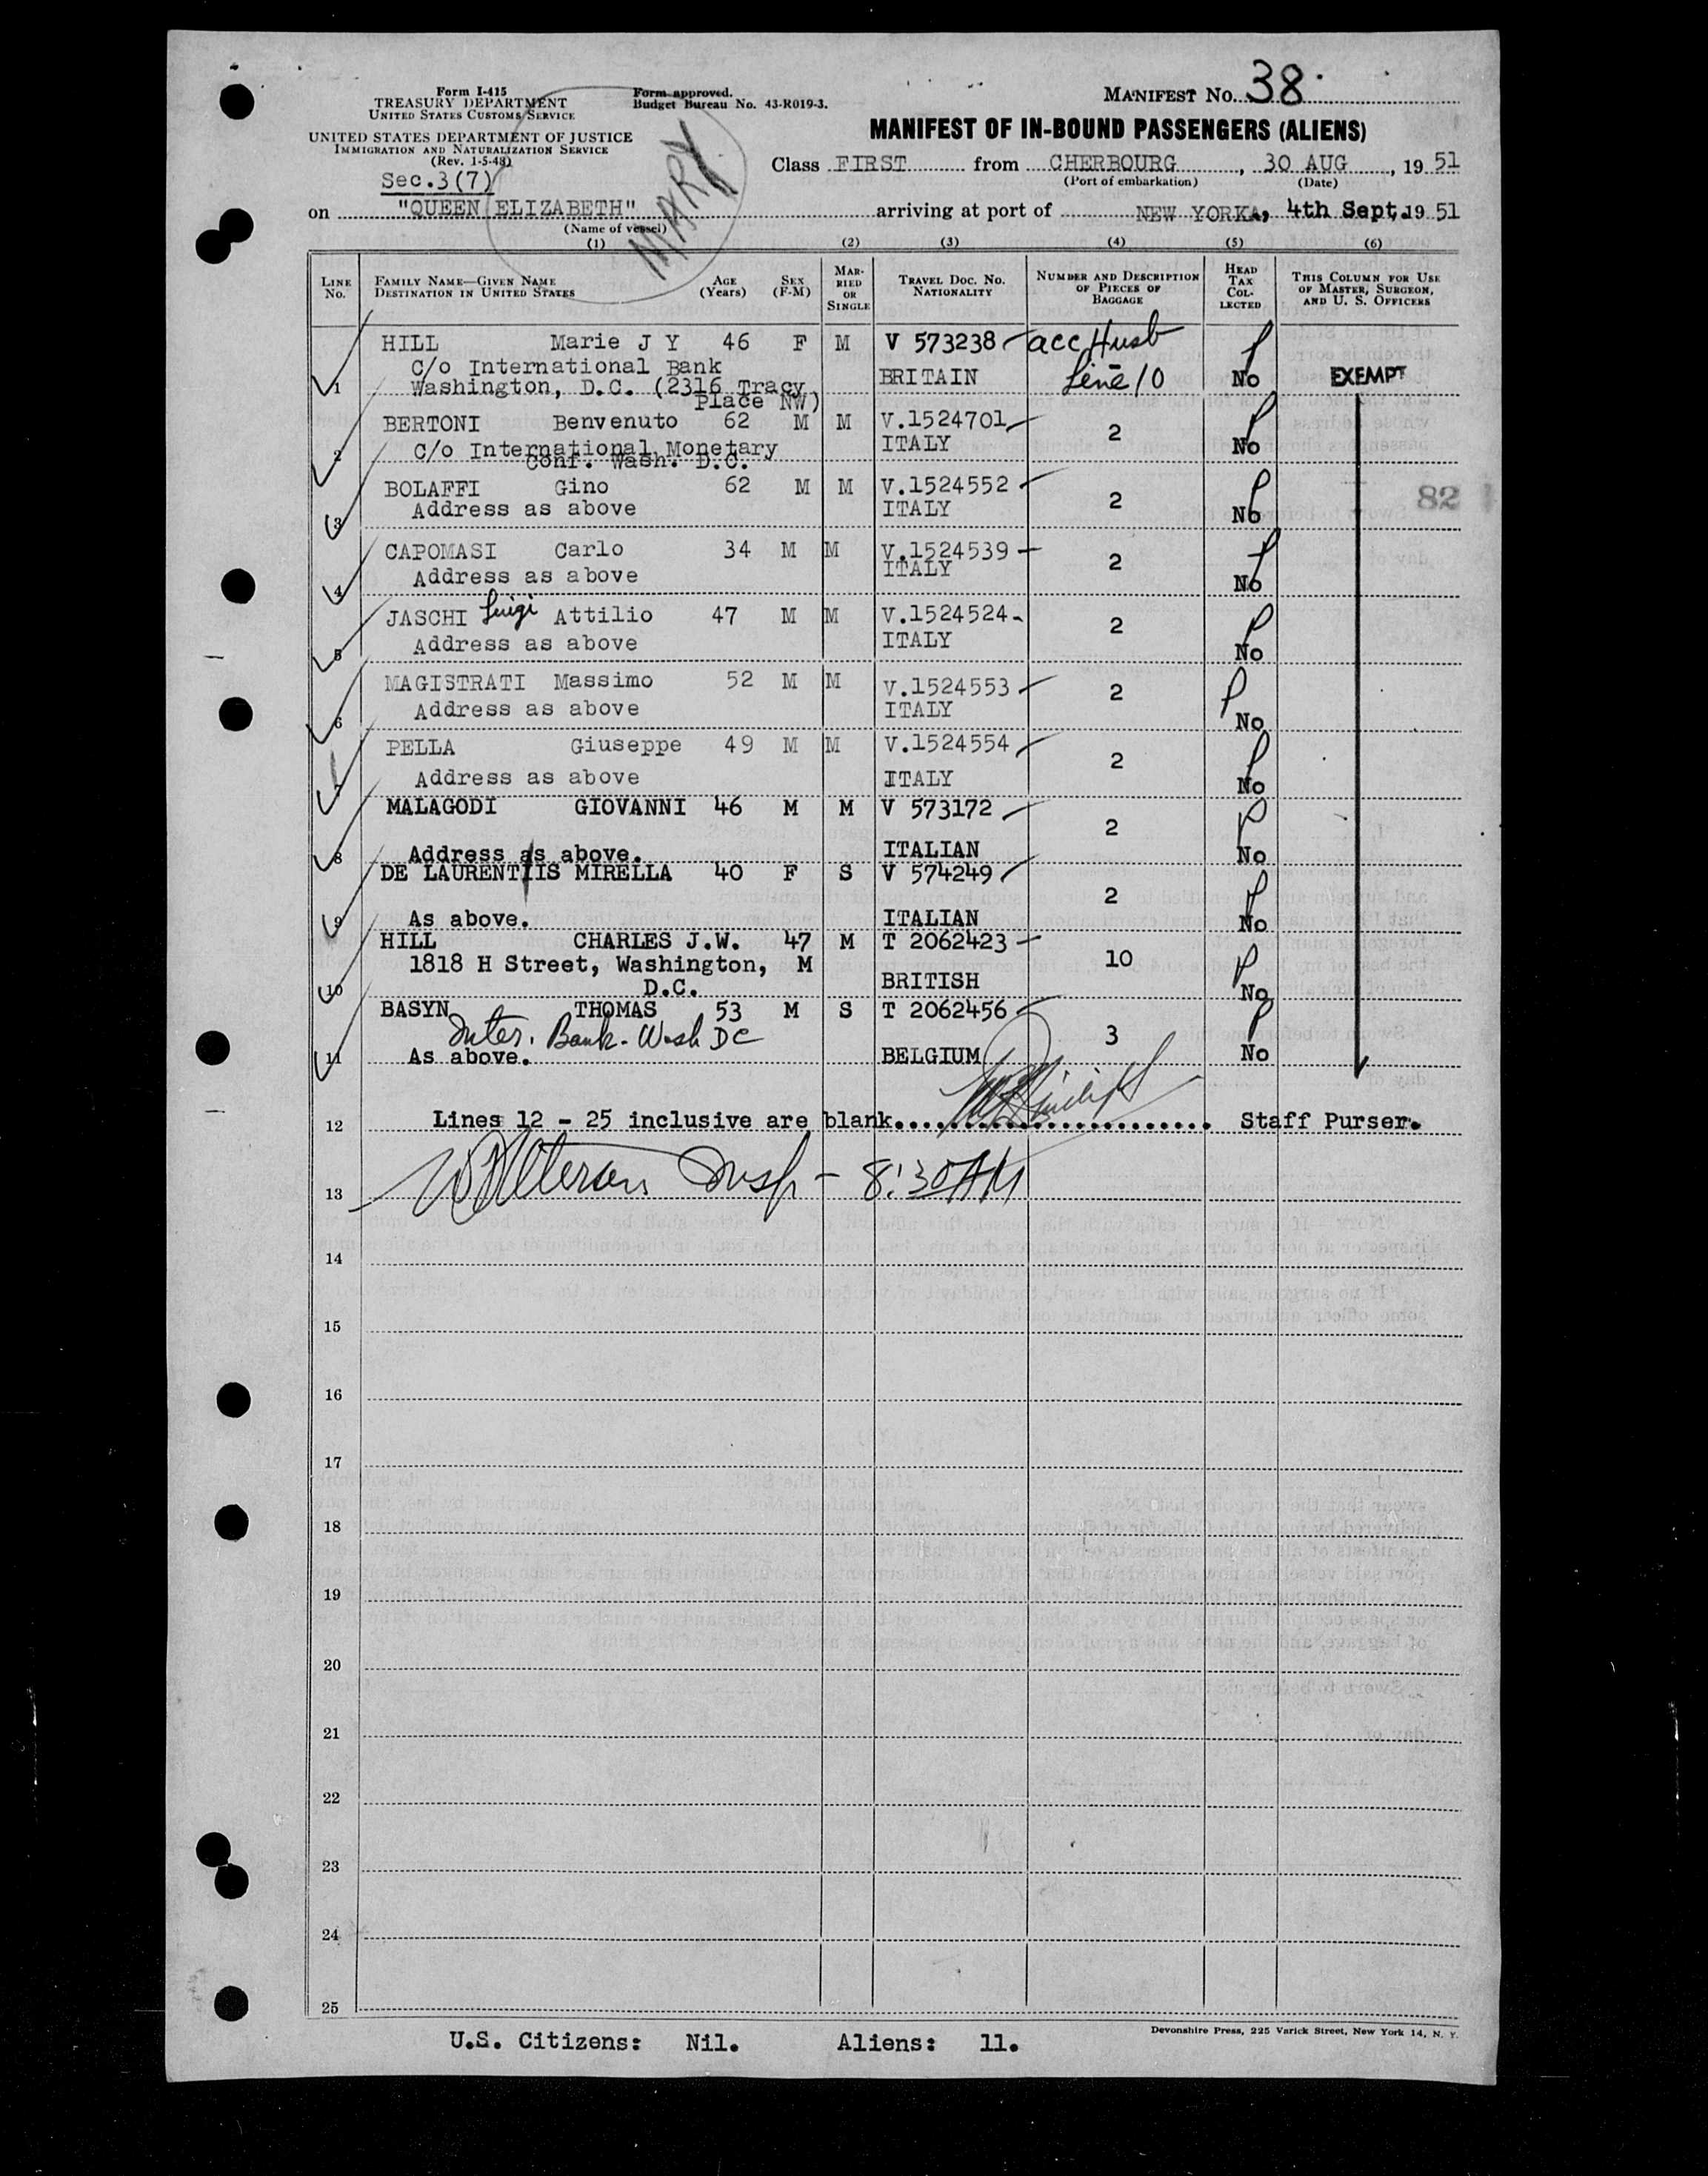 Form I-415
TREASURY DEPARTMENT
UNITED STATES CUSTOMS SERVICE
UNITED STATES DEPARTMENT OF JUSTICE
IMMIGRATION AND NATURALIZATION SERVICE
(Rev. 1-5-48)
Sec.3(7)
Form approved.
Budget Bureau No. 43-R019-3.
MARY
MANIFEST NO. 38
MANIFEST OF IN-BOUND PASSENGERS (ALIENS)
Class FIRST from CHERBOURG, 30 AUG, 19 51
(Port of embarkation) (Date)
on "QUEEN ELIZABETH" arriving at port of NEW YORK, 4th Sept. 19 51
(Name of vessel)
(1) (2) (3) (4) (5) (6)
LINE NO. FAMILY NAME—GIVEN NAME DESTINATION IN UNITED STATES AGE (Years) SEX (F-M) MARRIED OR SINGLE TRAVEL DOC. NO. NATIONALITY NUMBER AND DESCRIPTION OF PIECES OF BAGGAGE HEAD TAX COLLECTED THIS COLUMN FOR USE OF MASTER, SURGEON, AND U. S. OFFICERS
HILL Marie J Y 46 F M V 573238 acc Husb
C/o International Bank
1 Washington, D.C. (2316 Tracy BRITAIN Line 10 No EXEMPT
Place NW)
BERTONI Benvenuto 62 M M V.1524701 2
2 C/o International Monetary ITALY No
Conf. Wash. D.C.
BOLAFFI Gino 62 M M V.1524552 2
3 Address as above ITALY No
82
CAPOMASI Carlo 34 M M V.1524539 2
4 Address as above ITALY No
JASCHI Luigi Attilio 47 M M V.1524524 2
5 Address as above ITALY No
MAGISTRATI Massimo 52 M M V.1524553 2
6 Address as above ITALY No
PELLA Giuseppe 49 M M V.1524554 2
7 Address as above ITALY No
MALAGODI GIOVANNI 46 M M V 573172 2
8 Address as above. ITALIAN No
DE LAURENTIIS MIRELLA 40 F S V 574249 2
9 As above. ITALIAN No
HILL CHARLES J.W. 47 M T 2062423 10
1818 H Street, Washington, M
10 D.C. BRITISH No
BASYN THOMAS 53 M S T 2062456 3
Inter. Bank. Wash DC
11 As above. BELGIUM No
12 Lines 12 - 25 inclusive are blank........................ Staff Purser.
13 Insp - 8:30 AM
14
15
16
17
18
19
20
21
22
23
24
25
Devonshire Press, 225 Varick Street, New York 14, N. Y.
U.S. Citizens: Nil. Aliens: 11.